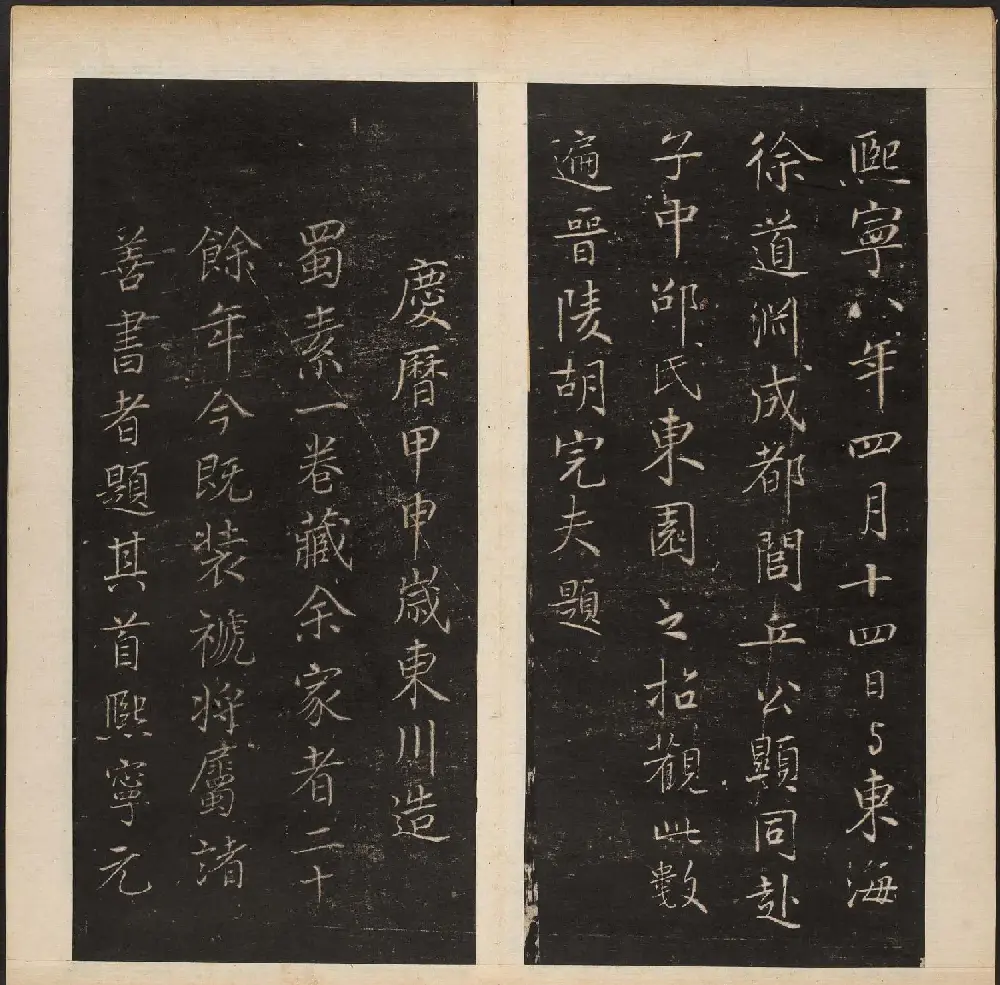 熙寧八年四月十四日与東海
徐道渊成都閭丘公顯同赴
子中邵氏東園之招觀此數
遍晉陵胡完夫題
慶曆甲申歲東川造
蜀素一卷藏余家者二十
餘年今既装褫将屬諸
善書者題其首熙寧元